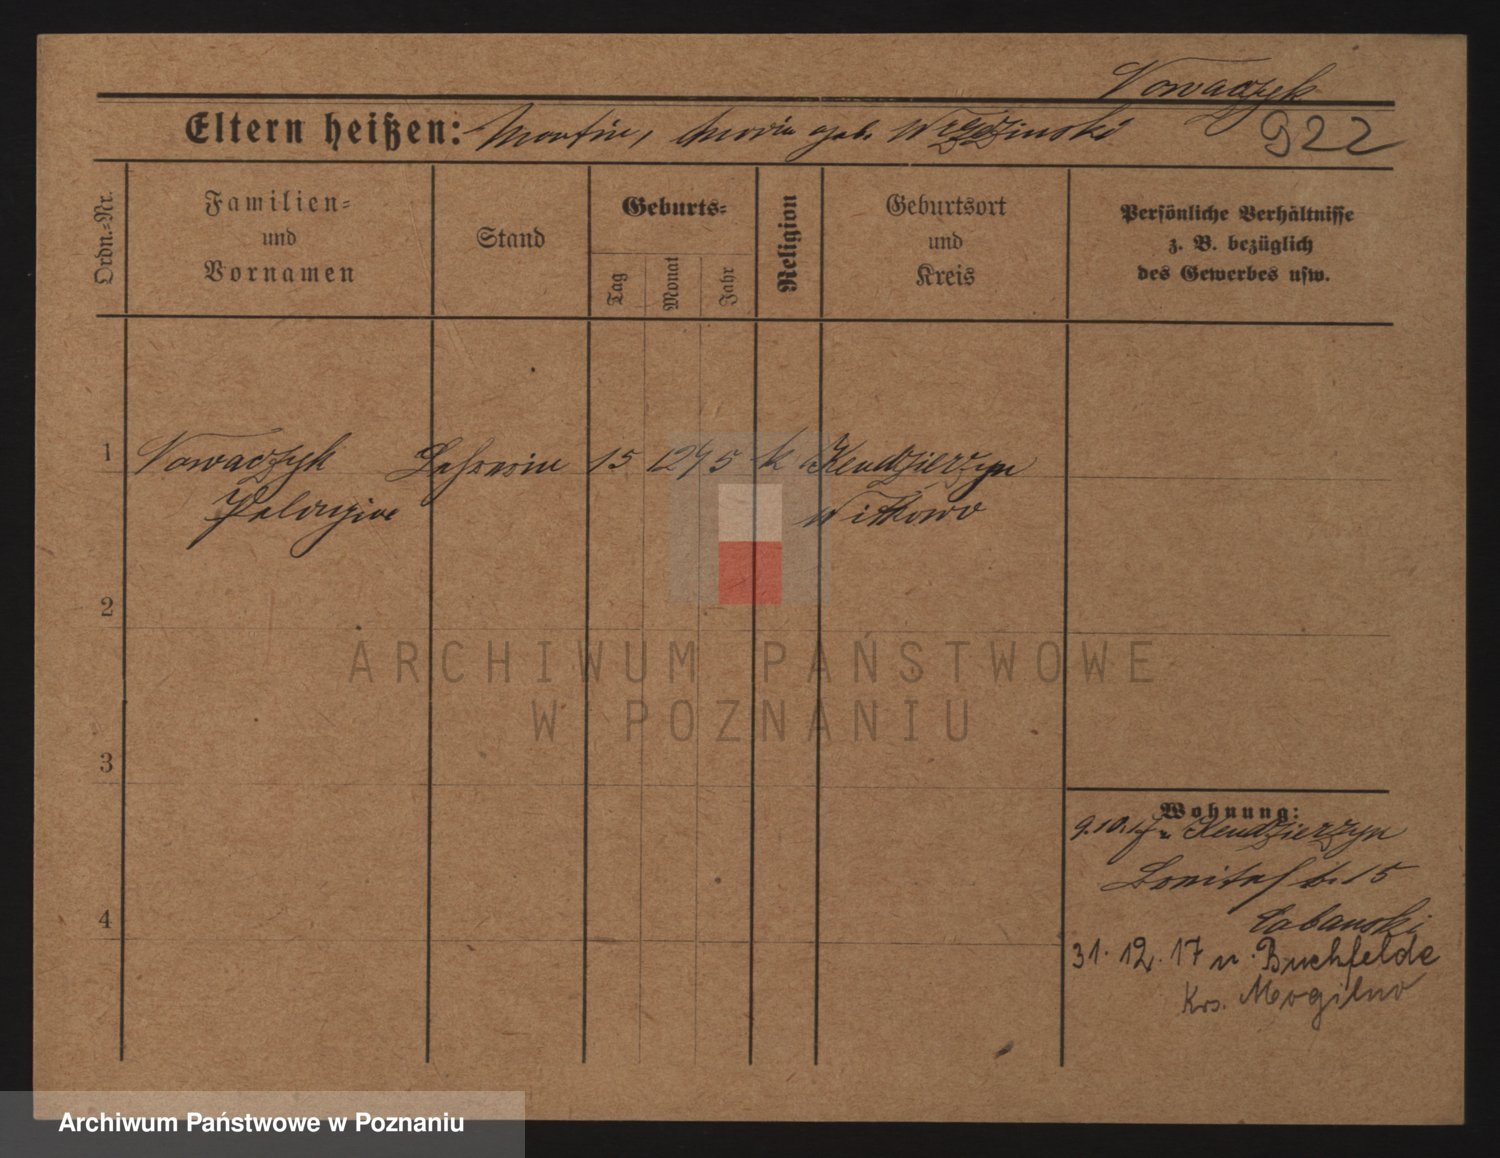 Nowaczyk
Eltern heißen: Martin, Maria geb. Wrzeszinski
922
Ordn.-Nr.
Familien-
und
Vornamen
Stand
Geburts-
Tag
Monat
Jahr
Religion
Geburtsort
und
Kreis
Persönliche Verhältnisse
z. B. bezüglich
des Gewerbes usw.
1
Nowaczyk Lehrerin 15 12 75 k Kendzierzyn
Pelagia Witkowo
2
ARCHIWUM PAŃSTWOWE
W POZNANIU
3
Wohnung:
9.10.17 v. Kendzierzyn
b. 15
4
31. 12. 17 n. Buchfelde
Krs. Mogilno
Archiwum Państwowe w Poznaniu